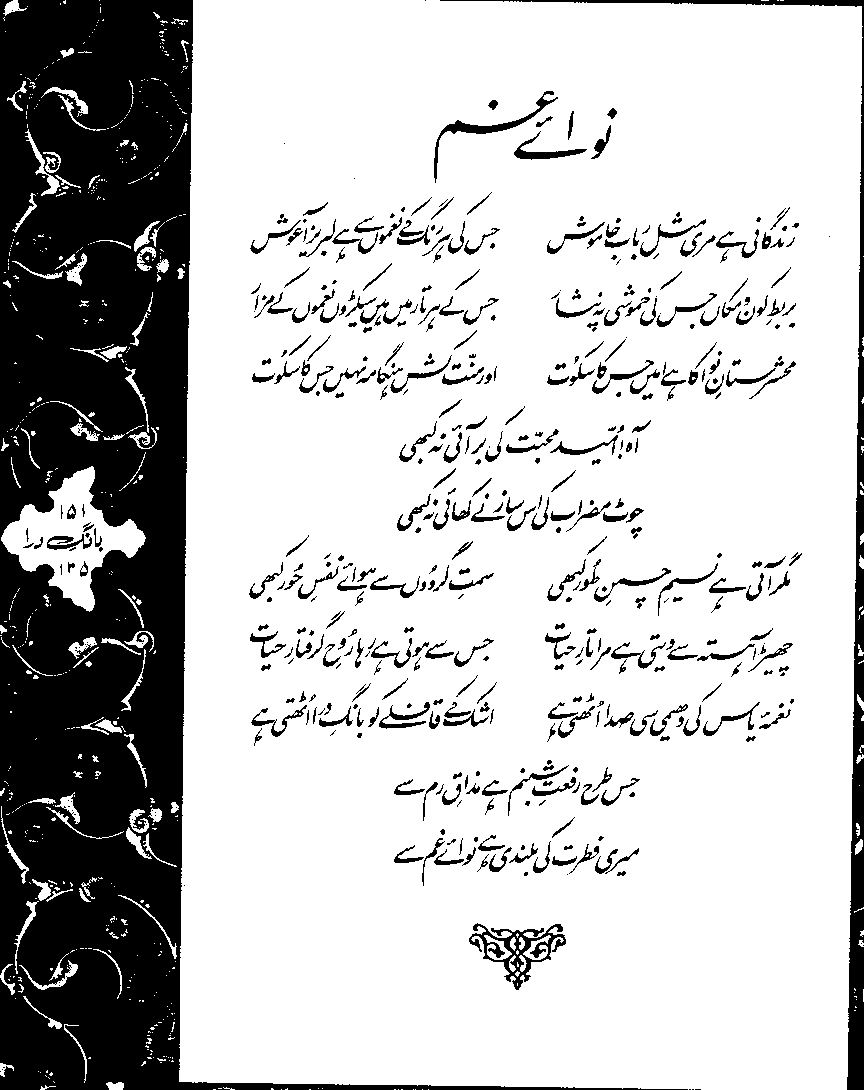 نوائے غم
زندگانی ہے مری مثلِ ربابِ خاموش جس کی ہر رنگ کے نغموں سے ہے لبریز آغوش
بربطِ کون و مکاں جس کی خموشی پہ نثار جس کے ہر تار میں ہیں سیکڑوں نغموں کے مزار
محشرستانِ نوا کا ہے امیں جس کا سکُوت اور منّت کشِ ہنگامہ نہیں جس کا سکُوت
آہ! اُمّید محبّت کی بر آئی نہ کبھی
چوٹ مضراب کی اس ساز نے کھائی نہ کبھی
مگر آتی ہے نسیمِ چمنِ طُور کبھی سمتِ گردُوں سے ہوائے نفَسِ حُور کبھی
چھیڑ آہستہ سے دیتی ہے مرا تارِ حیات جس سے ہوتی ہے رہا رُوحِ گرفتارِ حیات
نغمۂ یاس کی دھیمی سی صدا اُٹھتی ہے اشک کے قافلے کو بانگِ درا اُٹھتی ہے
جس طرح رفعتِ شبنم ہے مذاقِ رم سے
میری فطرت کی بلندی ہے نوائے غم سے
۱۵۱
بانگِ درا
۱۳۵